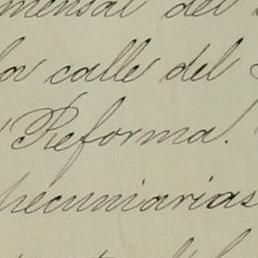 mensal del
la calle del
Reforma.
pecuniarias